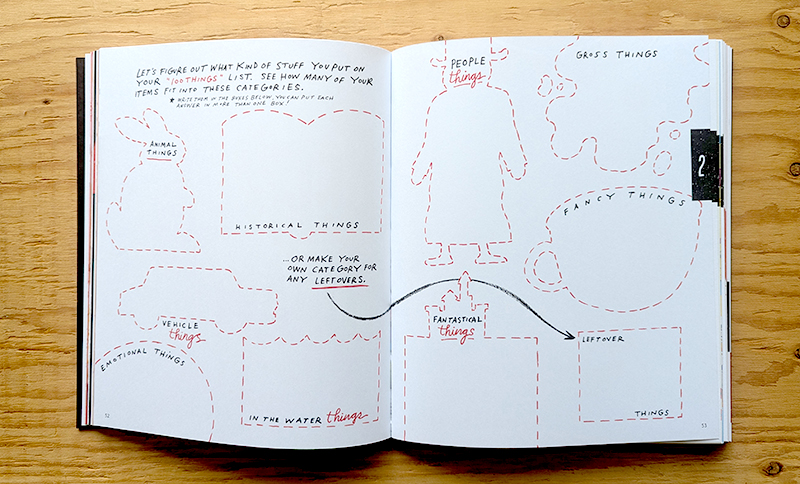 LET'S FIGURE OUT WHAT KIND OF STUFF YOU PUT ON
YOUR "100 THINGS" LIST. SEE HOW MANY OF YOUR
ITEMS FIT INTO THESE CATEGORIES.
* WRITE THEM IN THE BOXES BELOW. YOU CAN PUT EACH
ANSWER IN MORE THAN ONE BOX!
ANIMAL
THINGS
HISTORICAL THINGS
...OR MAKE YOUR
OWN CATEGORY FOR
ANY LEFTOVERS.
VEHICLE
things
EMOTIONAL THINGS
IN THE WATER things
52
PEOPLE
things
GROSS THINGS
2
FANCY THINGS
FANTASTICAL
things
LEFTOVER
THINGS
53